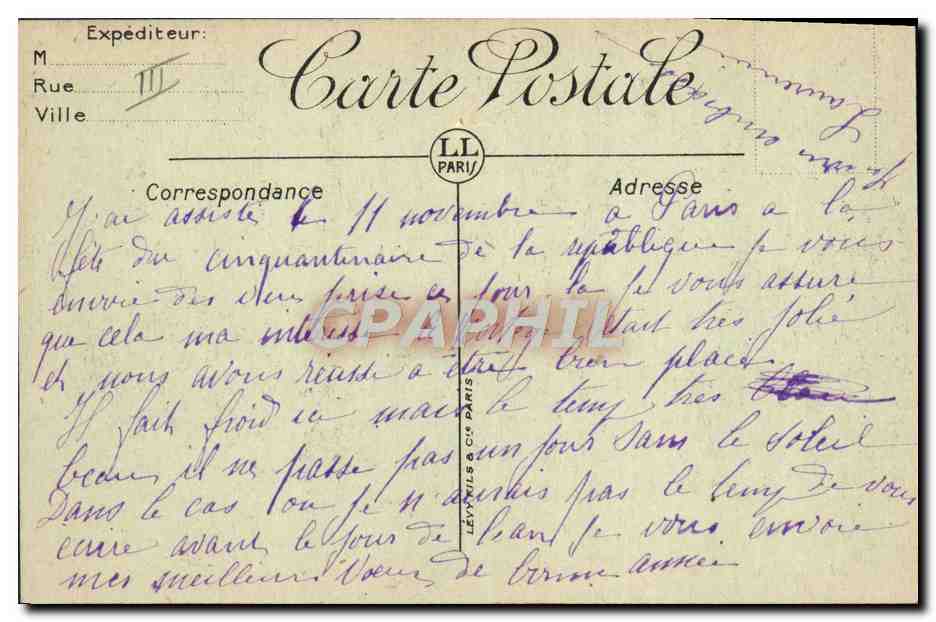 Expéditeur:
M
Rue
Ville
III
Carte Postale
LL
PARIS
Correspondance
Adresse
J'ai assisté le 11 novembre a Paris a la
fête du cinquantenaire de la république je vous
envoie des vues prise ce jour la je vous assure
que cela ma interessé le cortege etait tres jolie
et nous avons réussie a être bien placés
Il fait froid ici mais le temp très
beau il ne passe pas un jour sans le soleil
Dans le cas ou je n'aurais pas le temp de vous
ecrire avant le jour de l'an je vous envoie
mes meilleurs vœux de bonne année
LÉVY FILS & Cie PARIS
CPAPHIL